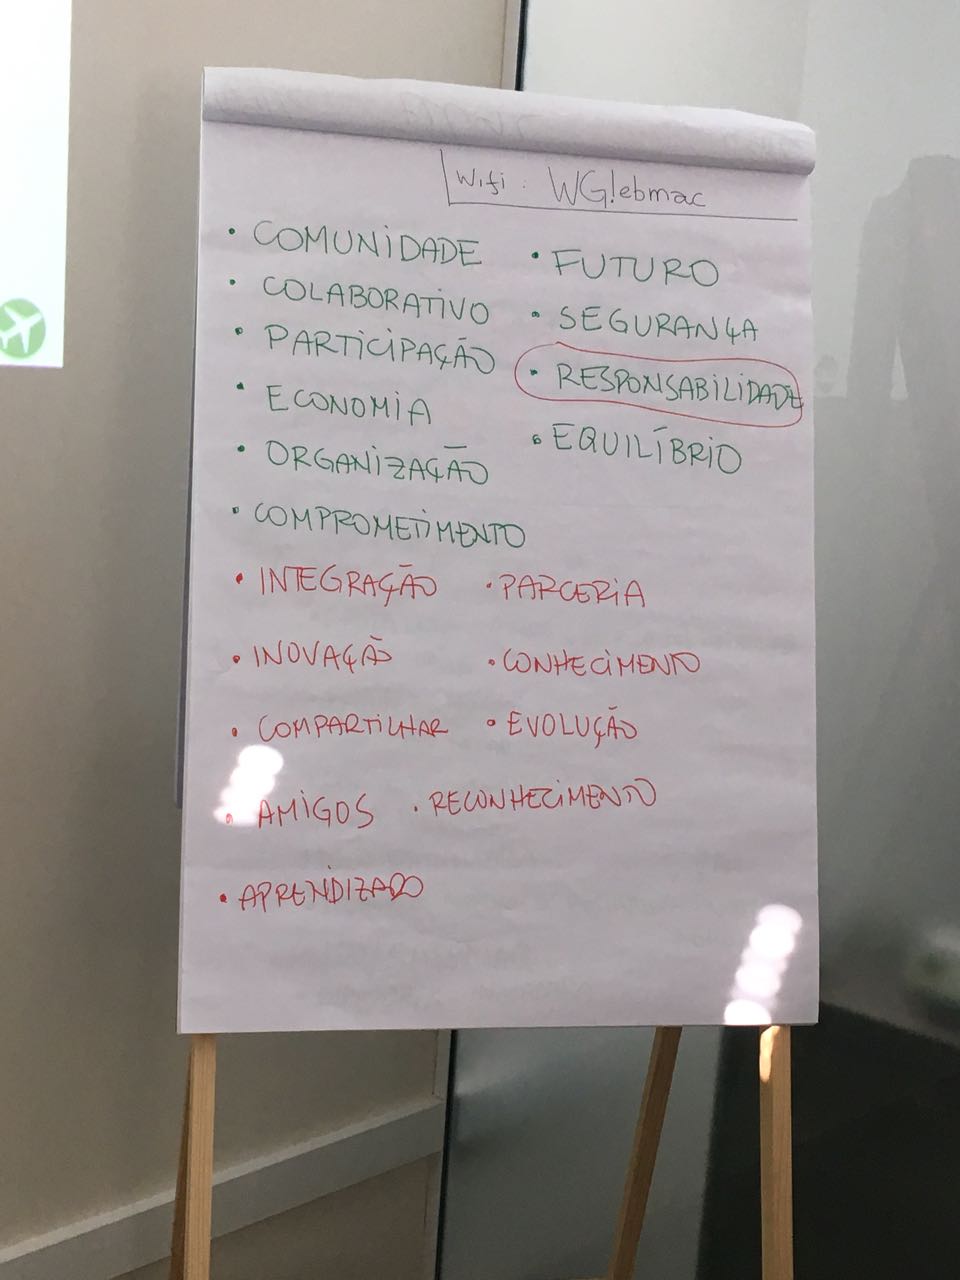 Wifi : WG!ebmac
• COMUNIDADE
• COLABORATIVO
• PARTICIPAÇÃO
• ECONOMIA
• ORGANIZAÇÃO
• COMPROMETIMENTO
• FUTURO
• SEGURANÇA
• RESPONSABILIDADE
• EQUILÍBRIO
• INTEGRAÇÃO
• INOVAÇÃO
• COMPARTILHAR
• AMIGOS
• APRENDIZADO
• PARCERIA
• CONHECIMENTO
• EVOLUÇÃO
• RECONHECIMENTO